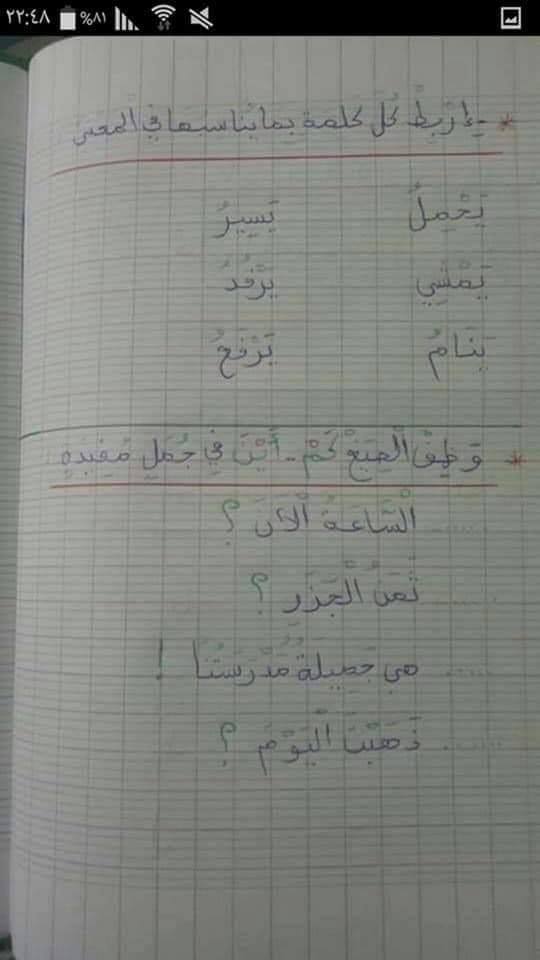 ٢٢:٤٨ ٨١%
* إربط كُلَّ كلمة بما يناسبها في المعنى
يَحْمِلُ يَسِيرُ
يَمْشِي يَرْقُدُ
يَنَامُ يَرْفَعُ
* وَظِفْ الْصِيَغْ كَمْ .. أَيْنَ فِي جُمَلٍ مُفِيدَةٍ
..... الْسَّاعَةُ الْآنَ ؟
..... ثَمَنُ الْجَزَرِ ؟
.... هِي جَمِيلَةٌ مَدْرَسَتُنَا !
..... ذَهَبْتَ الْيَوْمَ ؟